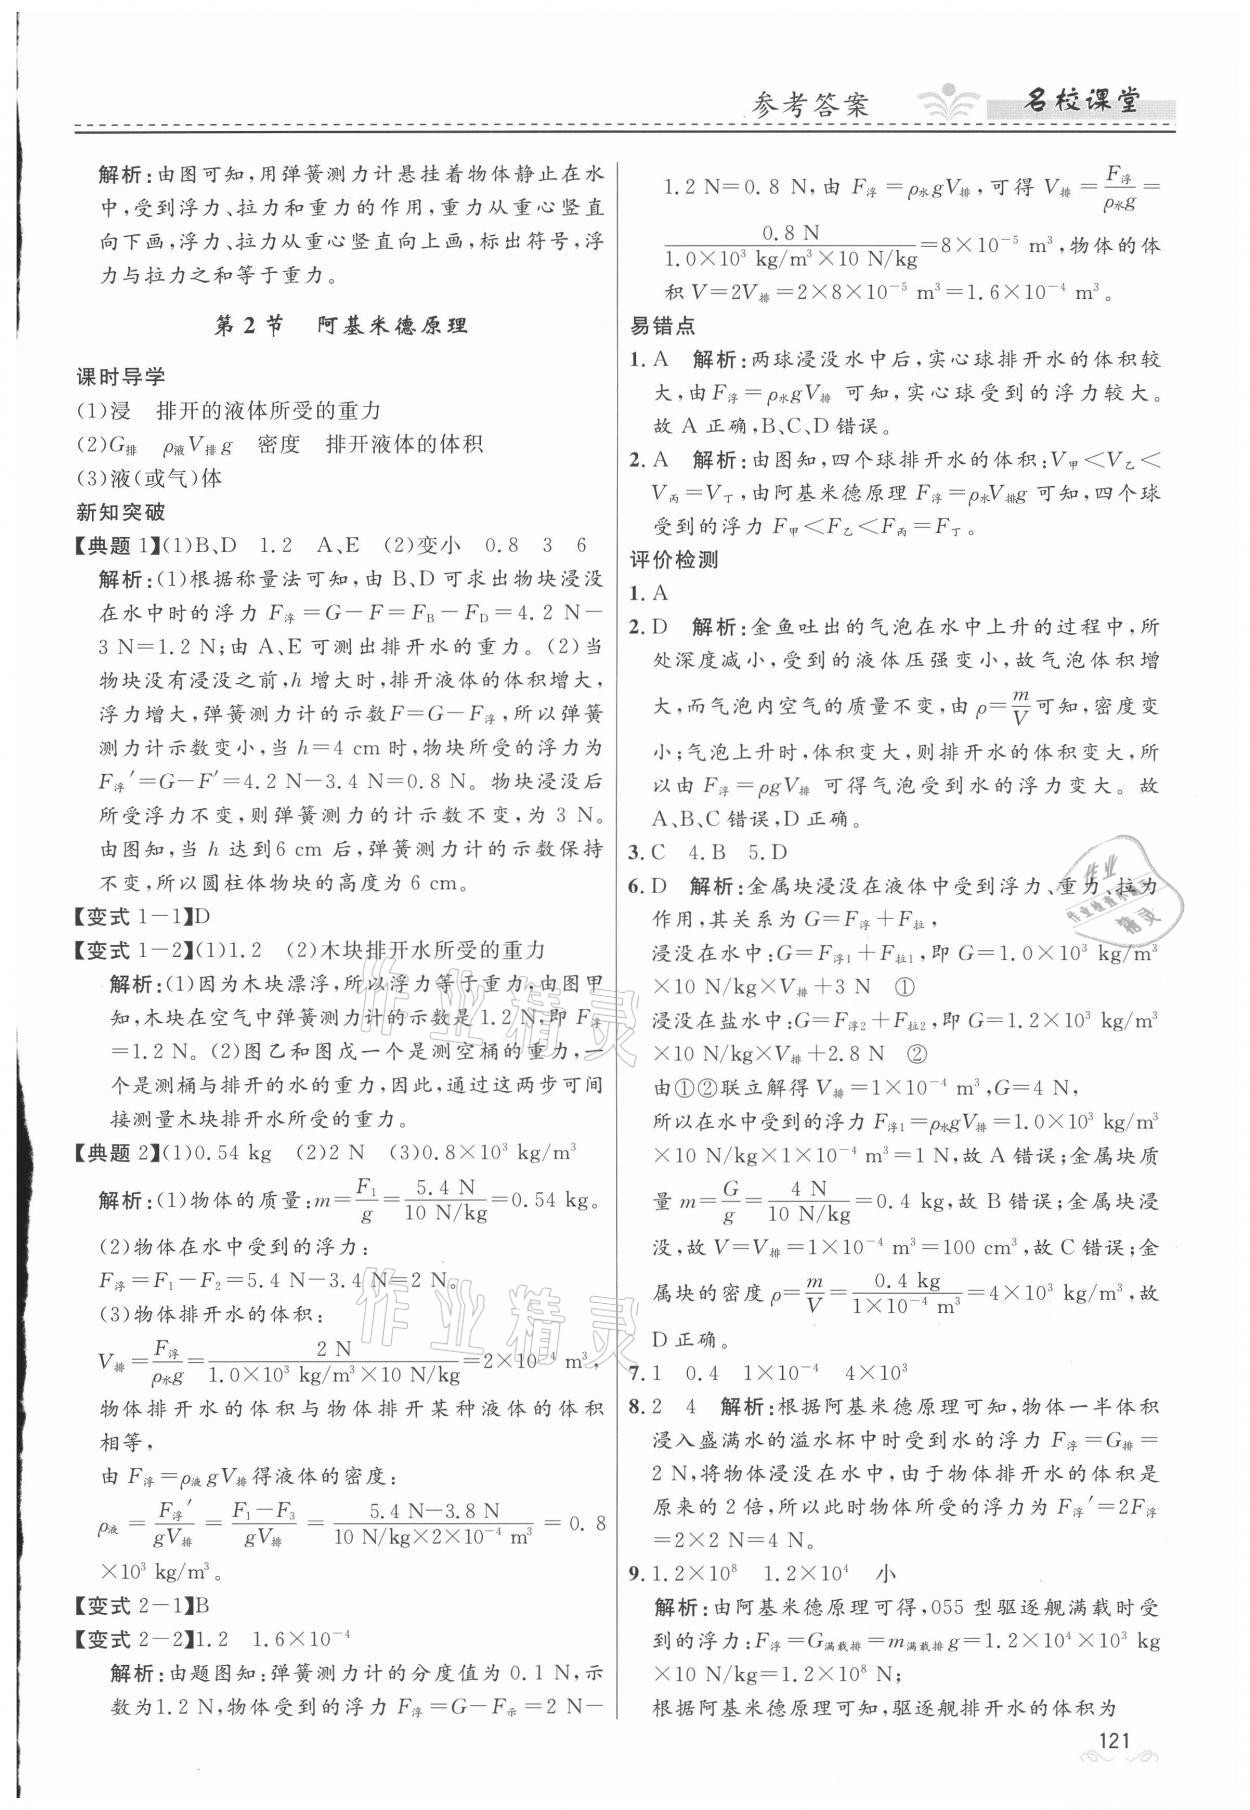 参考答案
名校课堂
解析:由图可知,用弹簧测力计悬挂着物体静止在水
中,受到浮力、拉力和重力的作用,重力从重心竖直
向下画,浮力、拉力从重心竖直向上画,标出符号,浮
力与拉力之和等于重力。
第2节 阿基米德原理
课时导学
(1)浸 排开的液体所受的重力
(2)G排 ρ液V排g 密度 排开液体的体积
(3)液(或气)体
新知突破
【典题1】(1)B、D 1.2 A、E (2)变小 0.8 3 6
解析:(1)根据称量法可知,由B、D可求出物块浸没
在水中时的浮力F浮=G-F=FB-FD=4.2 N-
3 N=1.2 N;由A、E可测出排开水的重力。(2)当
物块没有浸没之前,h增大时,排开液体的体积增大,
浮力增大,弹簧测力计的示数F=G-F浮,所以弹簧
测力计示数变小,当h=4 cm时,物块所受的浮力为
F浮′=G-F′=4.2 N-3.4 N=0.8 N。物块浸没后
所受浮力不变,则弹簧测力计的示数不变,为3 N。
由图知,当h达到6 cm后,弹簧测力计的示数保持
不变,所以圆柱体物块的高度为6 cm。
【变式1-1】D
【变式1-2】(1)1.2 (2)木块排开水所受的重力
解析:(1)因为木块漂浮,所以浮力等于重力,由图甲
知,木块在空气中弹簧测力计的示数是1.2 N,即F浮
=1.2 N。(2)图乙和图戊一个是测空桶的重力,一
个是测桶与排开的水的重力,因此,通过这两步可间
接测量木块排开水所受的重力。
【典题2】(1)0.54 kg (2)2 N (3)0.8×10³ kg/m³
解析:(1)物体的质量:m=F₁/g=5.4 N/10 N/kg=0.54 kg。
(2)物体在水中受到的浮力:
F浮=F₁-F₂=5.4 N-3.4 N=2 N。
(3)物体排开水的体积:
V排=F浮/ρ水g=2 N/1.0×10³ kg/m³×10 N/kg=2×10⁻⁴ m³,
物体排开水的体积与物体排开某种液体的体积
相等,
由F浮=ρ液gV排得液体的密度:
ρ液=F浮′/gV排=F₁-F₃/gV排=5.4 N-3.8 N/10 N/kg×2×10⁻⁴ m³=0.8
×10³ kg/m³。
【变式2-1】B
【变式2-2】1.2 1.6×10⁻⁴
解析:由题图知:弹簧测力计的分度值为0.1 N,示
数为1.2 N,物体受到的浮力F浮=G-F示=2 N-
1.2 N=0.8 N,由F浮=ρ水gV排,可得V排=F浮/ρ水g=
0.8 N/1.0×10³ kg/m³×10 N/kg=8×10⁻⁵ m³,物体的体
积V=2V排=2×8×10⁻⁵ m³=1.6×10⁻⁴ m³。
易错点
1. A 解析:两球浸没水中后,实心球排开水的体积较
大,由F浮=ρ水gV排可知,实心球受到的浮力较大。
故A正确,B、C、D错误。
2. A 解析:由图知,四个球排开水的体积:V甲<V乙<
V丙=V丁,由阿基米德原理F浮=ρ水V排g可知,四个球
受到的浮力F甲<F乙<F丙=F丁。
评价检测
1. A
2. D 解析:金鱼吐出的气泡在水中上升的过程中,所
处深度减小,受到的液体压强变小,故气泡体积增
大,而气泡内空气的质量不变,由ρ=m/V可知,密度变
小;气泡上升时,体积变大,则排开水的体积变大,所
以由F浮=ρgV排可得气泡受到水的浮力变大。故
A、B、C错误,D正确。
3. C 4. B 5. D
6. D 解析:金属块浸没在液体中受到浮力、重力、拉力
作用,其关系为G=F浮+F拉,
浸没在水中:G=F浮1+F拉1,即G=1.0×10³ kg/m³
×10 N/kg×V排+3 N ①
浸没在盐水中:G=F浮2+F拉2,即G=1.2×10³ kg/m³
×10 N/kg×V排+2.8 N ②
由①②联立解得V排=1×10⁻⁴ m³,G=4 N,
所以在水中受到的浮力F浮1=ρ水gV排=1.0×10³ kg/m³
×10 N/kg×1×10⁻⁴ m³=1 N,故A错误;金属块质
量m=G/g=4 N/10 N/kg=0.4 kg,故B错误;金属块浸
没,故V=V排=1×10⁻⁴ m³=100 cm³,故C错误;金
属块的密度ρ=m/V=0.4 kg/1×10⁻⁴ m³=4×10³ kg/m³,故
D正确。
7. 1 0.4 1×10⁻⁴ 4×10³
8. 2 4 解析:根据阿基米德原理可知,物体一半体积
浸入盛满水的溢水杯中时受到水的浮力F浮=G排=
2 N,将物体浸没在水中,由于物体排开水的体积是
原来的2倍,所以此时物体所受的浮力为F浮′=2F浮
=2×2 N=4 N。
9. 1.2×10⁸ 1.2×10⁴ 小
解析:由阿基米德原理可得,055型驱逐舰满载时受
到的浮力:F浮=G满载排=m满载排g=1.2×10⁴×10³ kg
×10 N/kg=1.2×10⁸ N;
根据阿基米德原理可知,驱逐舰排开水的体积为
121
作业精灵
作业精灵
作业
精灵